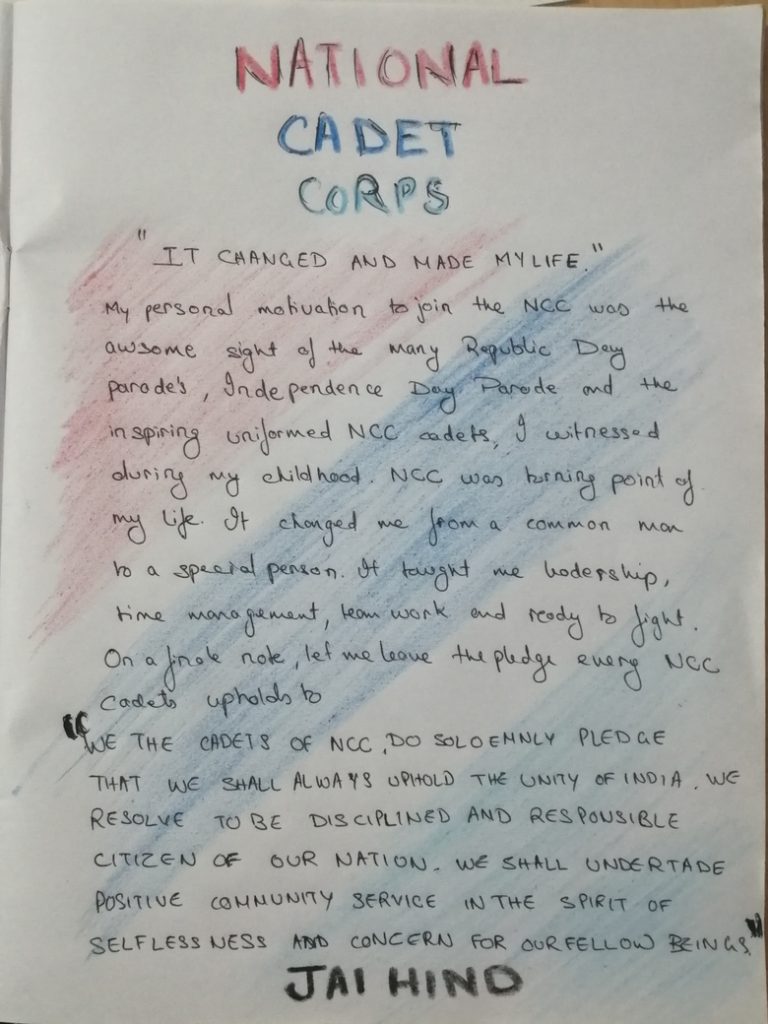 NATIONAL
CADET
CORPS
"IT CHANGED AND MADE MY LIFE."
My personal motivation to join the NCC was the
awsome sight of the many Republic Day
parade's, Independence Day Parade and the
inspiring uniformed NCC cadets, I witnessed
during my childhood. NCC was turning point of
my life. It changed me from a common man
to a special person. It taught me leadership,
time management, team work and ready to fight.
On a finale note, let me leave the pledge every NCC
Cadets upholds to
"WE THE CADETS OF NCC, DO SOLOEMNLY PLEDGE
THAT WE SHALL ALWAYS UPHOLD THE UNITY OF INDIA. WE
RESOLVE TO BE DISCIPLINED AND RESPONSIBLE
CITIZEN OF OUR NATION. WE SHALL UNDERTADE
POSITIVE COMMUNITY SERVICE IN THE SPIRIT OF
SELFLESSNESS AND CONCERN FOR OUR FELLOW BEINGS"
JAI HIND